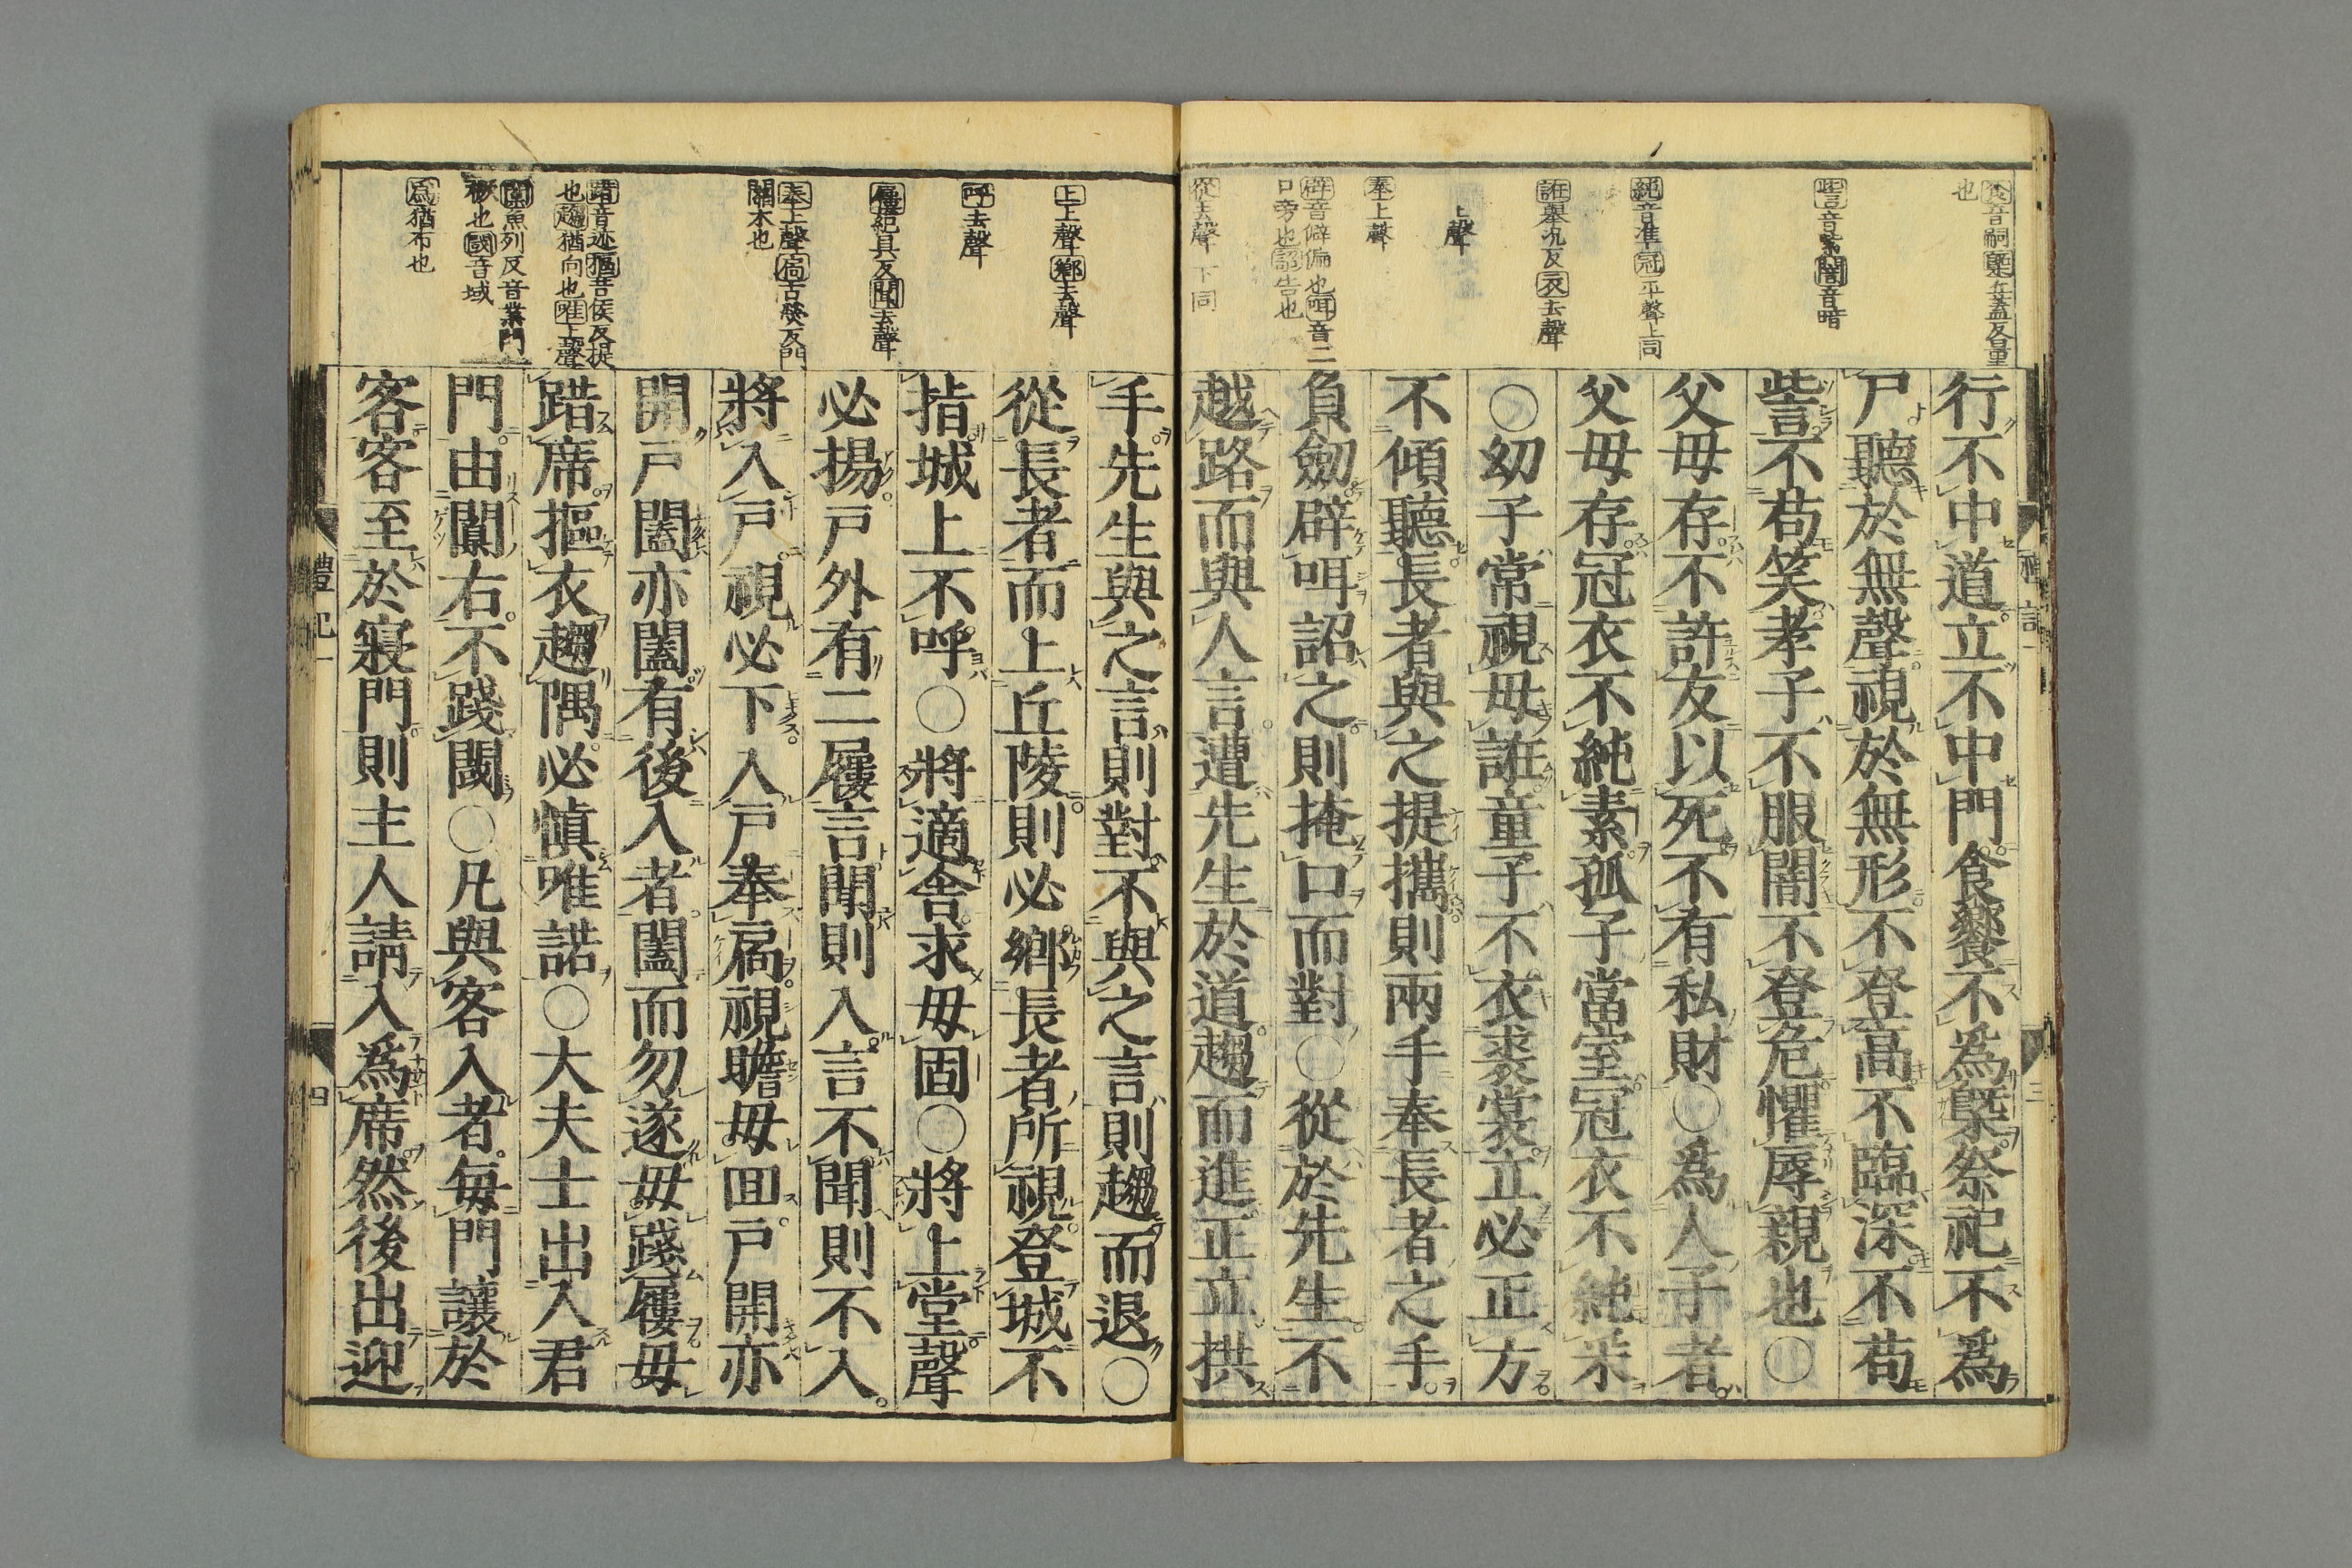 食音嗣槩古蓋反量
也
訾音紫闇音暗
純音準冠平聲上同
誑舉况反衣去聲
上聲
奉上聲
辟音僻偏也咡音二
口旁也詔告也
從去聲下同
行不中道立不中門食饗不爲槩祭祀不爲
尸聽於無聲視於無形不登高不臨深不苟
訾不苟笑孝子不服闇不登危懼辱親也〇
父母存不許友以死不有私財〇爲人子者
父母存冠衣不純素孤子當室冠衣不純采
〇幼子常視毋誑童子不衣裘裳立必正方
不傾聽長者與之提攜則兩手奉長者之手
負劒辟咡詔之則掩口而對〇從於先生不
越路而與人言遭先生於道趨而進正立拱
禮記一
三
上上聲鄉去聲
呼去聲
屨紀具反聞去聲
奉上聲扃古熒反門
關木也
踖音迹摳苦侯反提
也趨猶向也唯上聲
闑魚列反音業門
橛也閾音域
爲猶布也
手先生與之言則對不與之言則趨而退〇
從長者而上丘陵則必鄉長者所視登城不
指城上不呼〇將適舍求毋固〇將上堂聲
必揚戶外有二屨言聞則入言不聞則不入
將入戶視必下入戶奉扃視瞻毋回戶開亦
開戶闔亦闔有後入者闔而勿遂毋踐屨毋
踖席摳衣趨隅必慎唯諾〇大夫士出入君
門由闑右不踐閾〇凡與客入者每門讓於
客客至於寢門則主人請入爲席然後出迎
禮記一
四